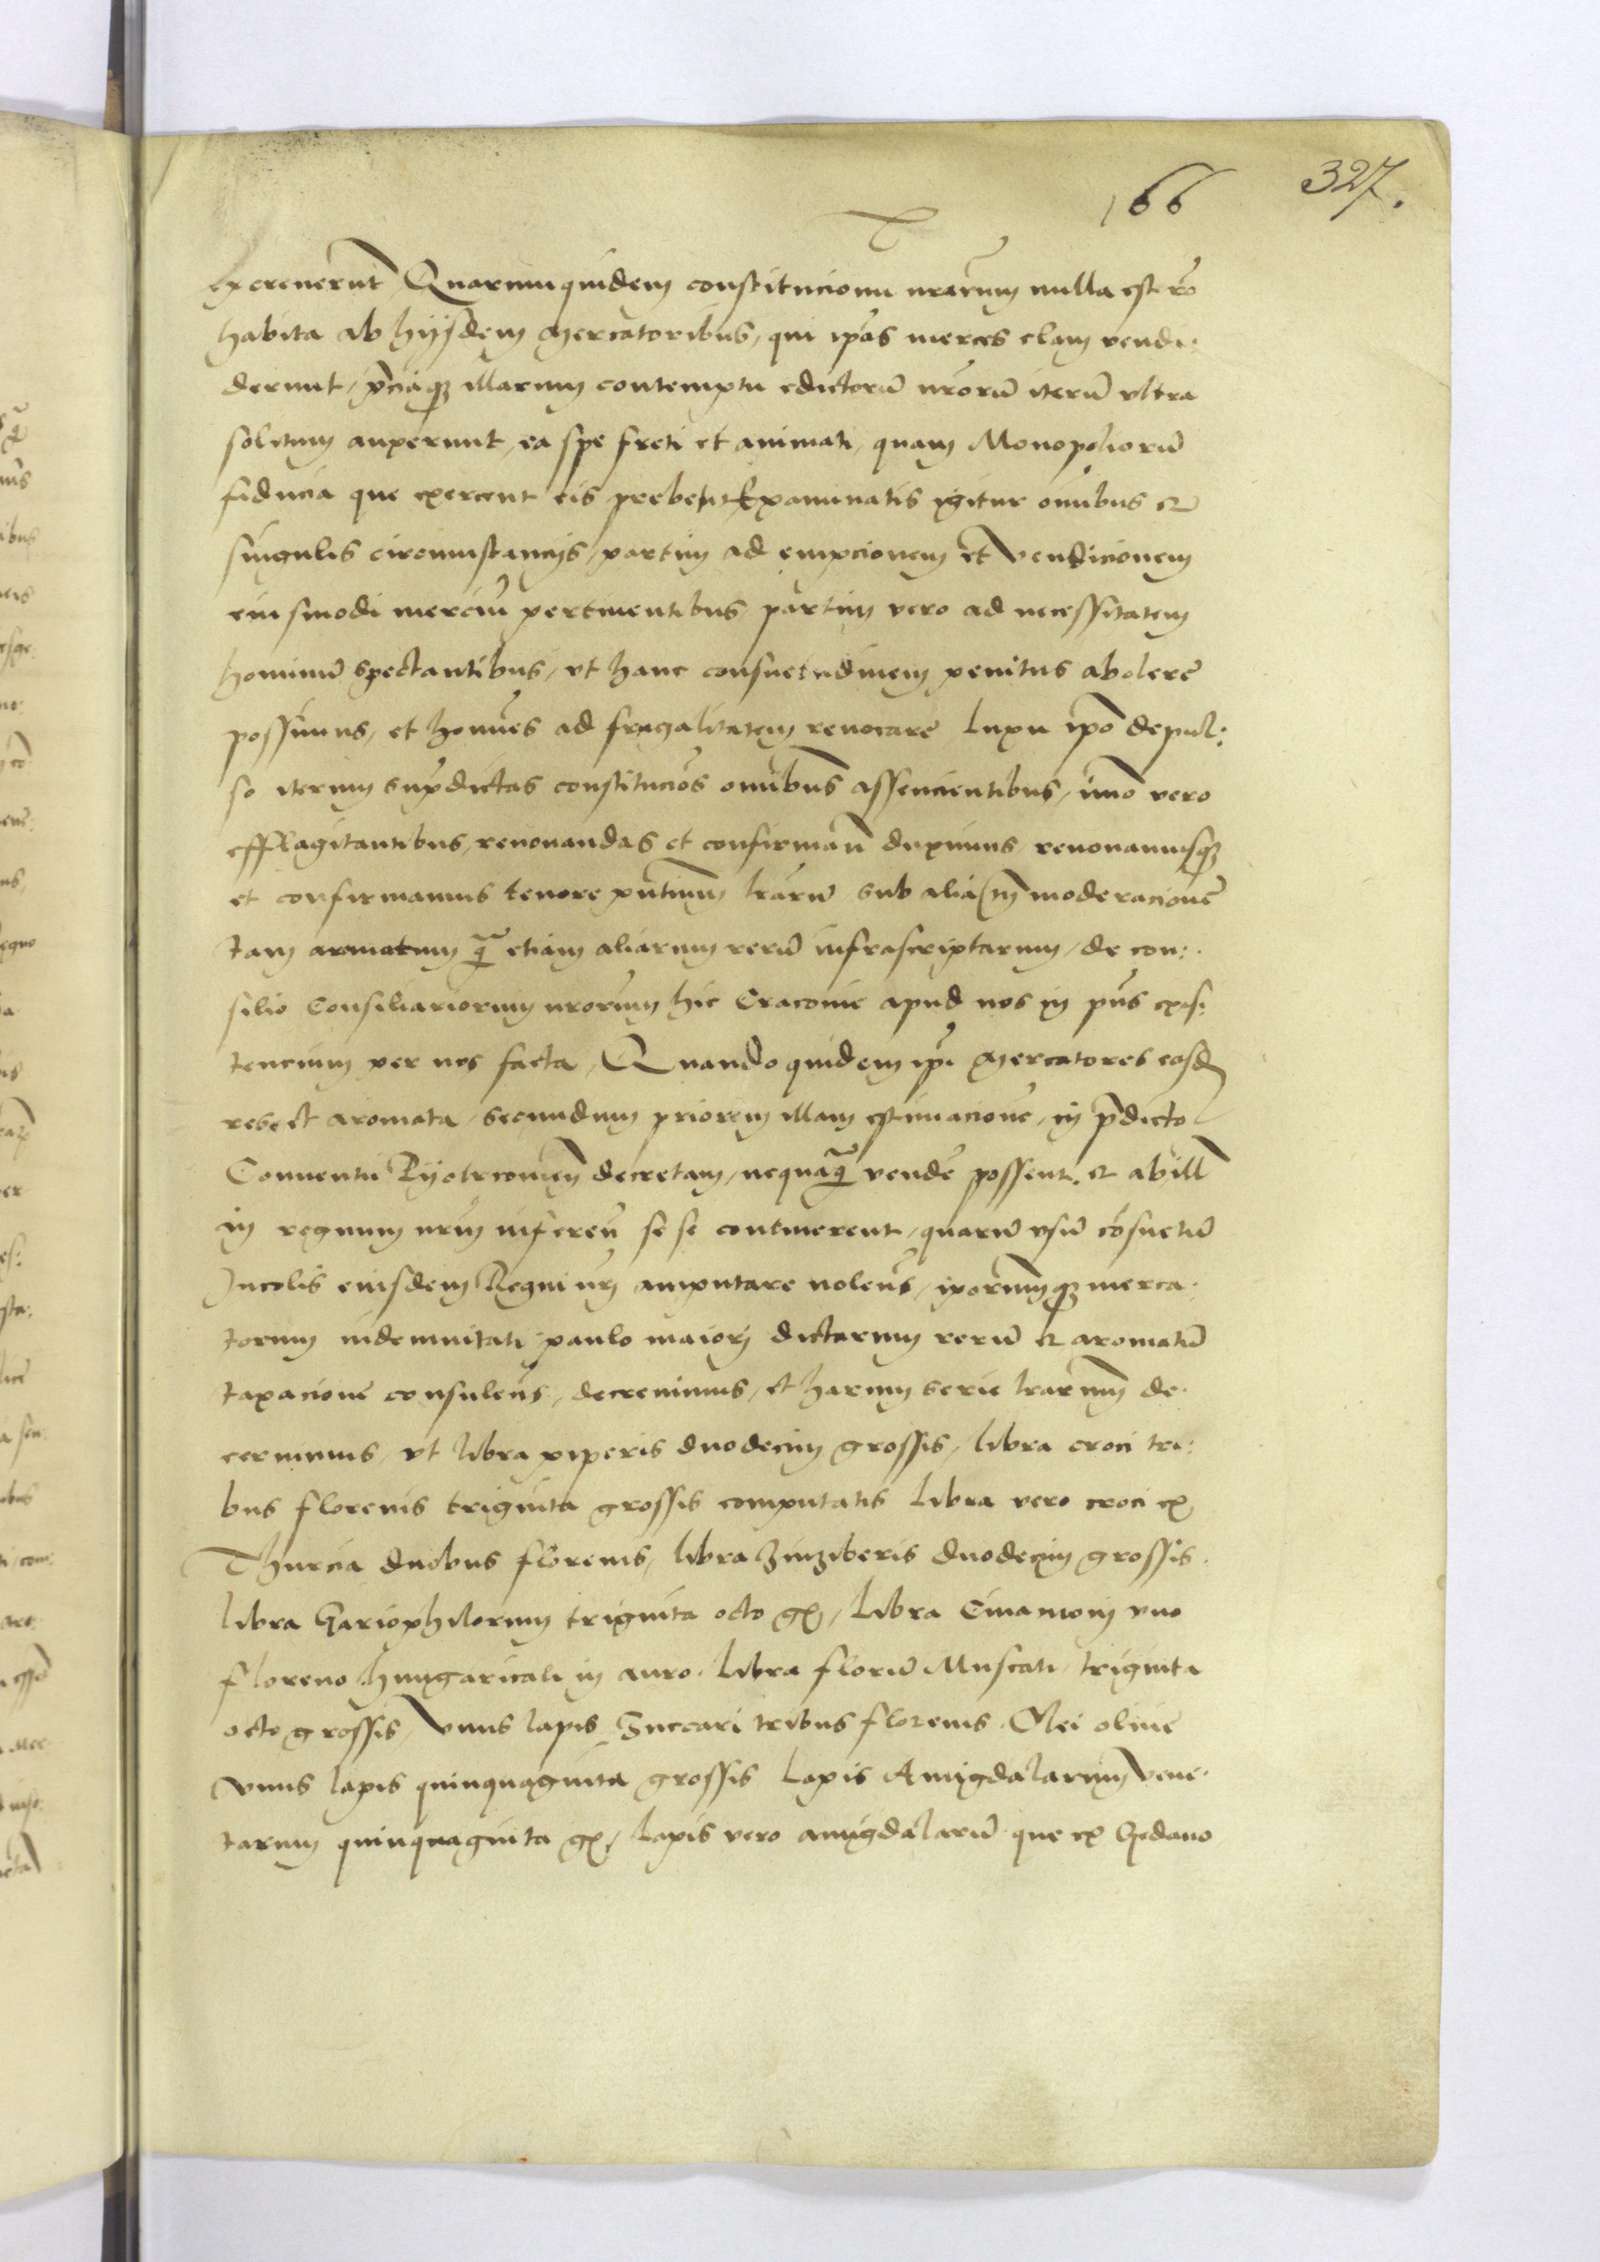 166 327.
excreuerūt Quarumquidem constitucionū nr̄arum nulla est rō
habita ab hijsdem Mercatoribus, qui ip̄as merces clam vendi:
derunt, p̄ciaq̨ illarum contemptu edictorū nr̄orū iterū vltra
solitum auxerunt, ea spe freti et animati, quam Monopoliorū
fiducia que exercent eis prebebat Examinatis igitur om̄ibus et
singulis circumstancijs, partim ad empcionem et Vendicionem
eiusmodi merciū pertinentibus, partim vero ad necessitatem
hominū spectantibus, vt hanc consuetudinem penitus abolere
possimus, et hom̄es ad frugalitatem reuocare luxu ip̄o depul:
so iterum sup̄dictas constitucio̅s om̄ibus assencientibus, im̄o vero
efflagitantibus, renouandas et confirman̄ duximus, renouamusq̨
et confirmamus tenore p̄ntium lr̄arū sub alia tn̄ moderacione
tam aromatum q̄ etiam aliarum rerū infrascriptarum, de con:
silio Consiliariorum nr̄orum hic Cracouie apud nos in p̄ns exis:
tencium per nos facta, Quandoquidem ip̄i Mercatores easd
res et aromata, secundum priorem illam estimacione, in p̄dicto
Conuentu Pyotrcouien̄ decretam, nequaq̄ vende̅ possent, et ab ill̄
in regnum nr̄m inferen̄ se se continerent, quarū vsū co̅suetū
Incolis eiusdem Regni nr̄i amputare nolen̄s, ip̄orumq̨ merca:
torum indemnitati paulo maiori dictarum rerū et aromatū
taxacione consulen̄s, decreuimus, et harum serie lr̄arum de:
cernimus, vt libra piperis duodecim grossis, libra croci tri:
bus florenis triginta grossis computatis Libra vero croci ex
Thurcia duobus florenis, libra Zinziberis duodecim grossis.
libra Gariophilorum triginta octo gr, Libra Cinamomi vno
floreno hungaricali in auro. Libra florū Muscati, triginta
octo grossis, Vnus lapis Zuccari tribus florenis. Olei oliue
Vnus lapis quinquaginta grossis Lapis Amigdalarum vene:
tarum quinquaginta gr, Lapis vero amigdalarū que ex Gedano